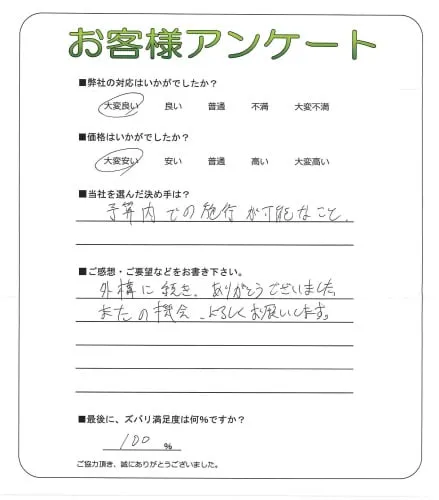 お客様アンケート
■弊社の対応はいかがでしたか?
大変良い 良い 普通 不満 大変不満
■価格はいかがでしたか?
大変安い 安い 普通 高い 大変高い
■当社を選んだ決め手は?
予算内での施行が可能なこと.
■ご感想・ご要望などをお書き下さい。
外構に続き、ありがとうございました
またの機会、よろしくお願いします。
■最後に、ズバリ満足度は何%ですか?
100 %
ご協力頂き、誠にありがとうございました。